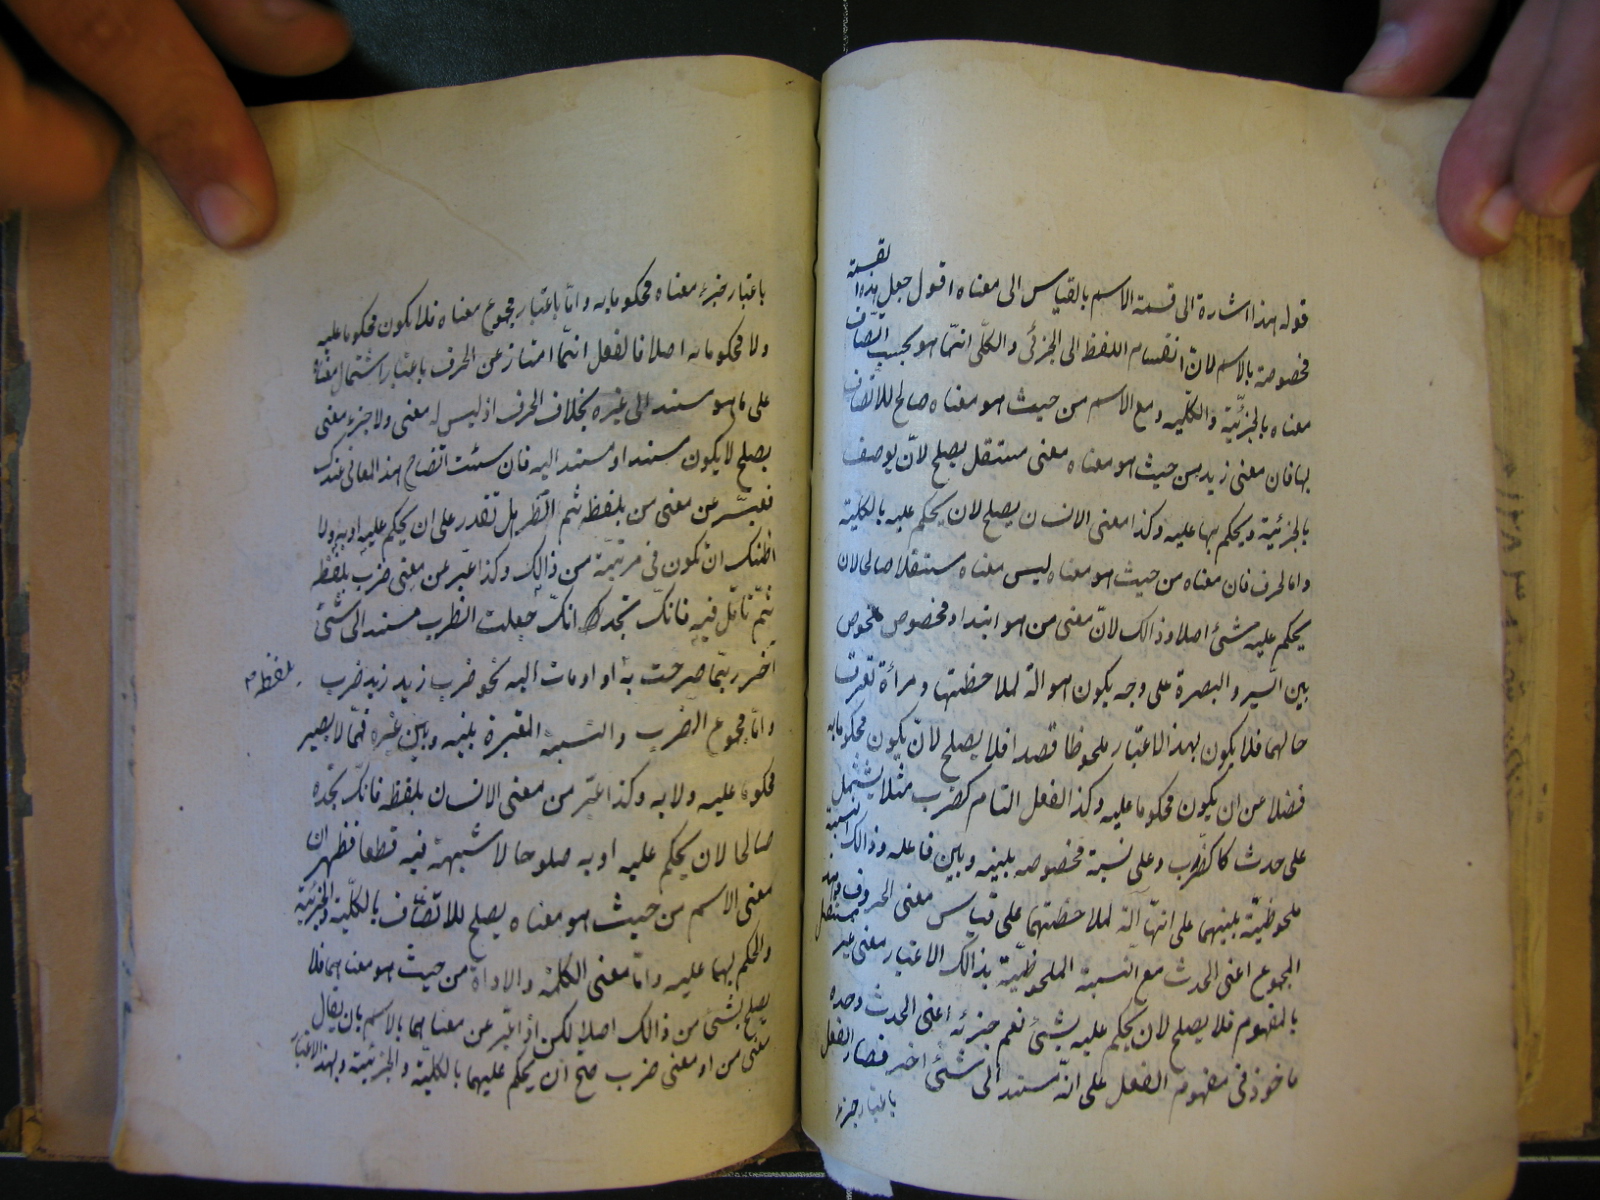 قوله هذا اشارة الى قسمة الاسم بالقياس الى معناه اقول جعل هذه القسمة
مخصوصة بالاسم لانّ انقسام اللفظ الى الجزئى والكلّى انّما هو بحسب اتّصاف
معناه بالجزئيّة والكلّيه ومع الاسم من حيث هو معناه صالح للاتّصاف
بها فان معنى زيد من حيث هو معناه معنى مستقل يصلح لانّ يوصف
بالجزئية ويحكم بها عليه وكذا معنى الانسان يصلح لان يحكم عليه بالكلية
واما الحرف فان معناه من حيث هو معناه ليس معناه مستقلا صالحا لان
يحكم عليه شئ اصلا وذالك لانّ معنى من هو ابتداء مخصوص ملحوظ
بين السير والبصرة على وجه يكون هو الة لملاحظتها ومرأة لتعرف
حالهما فلا يكون بهذا الاعتبار ملحوظا قصدا فلا يصلح لان يكون محكوما به
فضلا عن ان يكون محكوما عليه وكذا الفعل التام كضرب مثلا يشتمل
على حدث كالضرب وعلى نسبة مخصوصه بلينه وبين فاعله وذالك النسبة
ملحوظيّة بلينهما على انّها آلة لملاحظتهما على قياس معنى الحروف وهذه
المجموع اعنى الحدث مع النسبة الملحوظيّة بذالك الاعتبار معنى غير مستقل
بالمفهوم فلا يصلح لان يحكم عليه بشئ نعم جزئه اعنى الحدث وحده
ماخوذ فى مفهوم الفعل على انّه مسند الى شئ اخر فصار الفعل
باعتبار جزء
باعتبار جزء معناه محكوما به وامّا باعتبار مجموع معناه فلا يكون محكوما عليه
ولا محكوما به اصلا فالفعل انّما امتاز عن الحرف باعتبار اشتمال معناه
على ما هو مسند الى غيره بخلاف الحرف اذ ليس له معنى ولا جزء معنى
يصلح لا يكون مسندا او مسندا اليه فان سئت اتضاح هذا المعانى عندك
فعبّر عن معنى من بلفظه ثم انظر هل تقدر على ان يحكم عليه او به ولا
اظنك ان تكون فى مرتيّة من ذالك وكذا عبّر عن معنى ضرب بلفظه
ثمّ تامّل فيه فانكّ تجدك انكّ جعلت الضرب مسندا الى شئ
آخر ربّما صرحت به او اومات اليه نحو ضرب زيد زيد ضرب
بلفظه
وامّا مجموع الضرب والنسبة المعتبرة بلينه وبين غيره فمّما لا يصير
محكوما عليه ولا به وكذا عبّر من معنى الانسان بلفظه فانكّ تجده
صالحا لان يحكم عليه او به صلوحا لا شبهة فيه قطعا فظهر ان
معنى الاسم من حيث هو معناه يصلح للاتصّاف بالكلّية والجزئيّة
والحكم بهما عليه وامّا معنى الكلمة والاداة من حيث هو معناهما فلا
يصلح بشئ من ذالك اصلا لكن اذا عبّر عن معناهما بالاسم بان يقال
معنى من او معنى ضرب صح ان يحكم عليهما بالكليّة والجزئيّة وبهذا الاعتبار